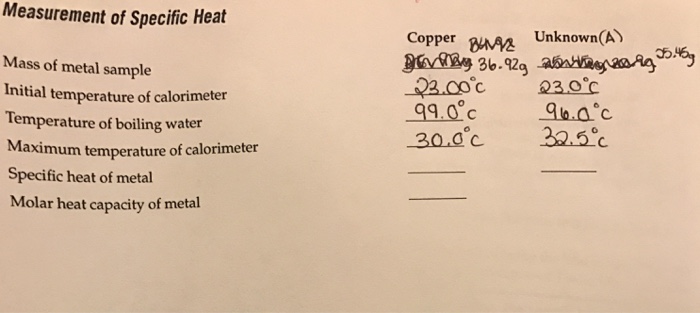 Measurement of Specific Heat
Copper Unknown(A)
Mass of metal sample 36.92g 25.45g
Initial temperature of calorimeter 23.00°c 23.0°c
Temperature of boiling water 99.0°c 96.0°c
Maximum temperature of calorimeter 30.0°c 32.5°c
Specific heat of metal
Molar heat capacity of metal